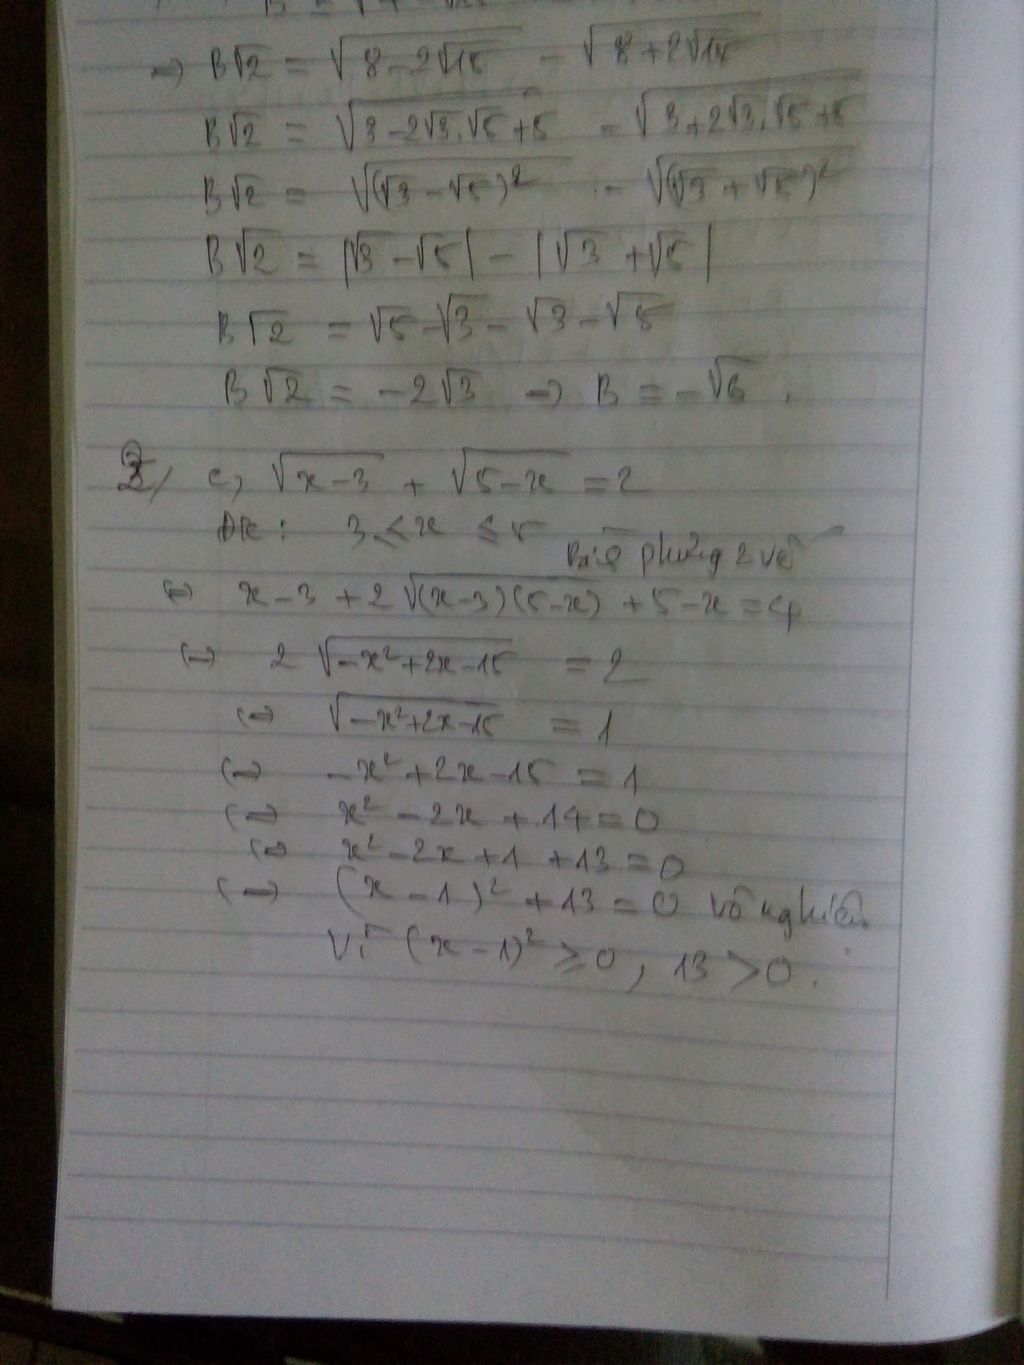 ⇒ B√2 = √(8-2√15) - √(8+2√15)
B√2 = √(3-2√3.√5+5) - √(3+2√3.√5+5)
B√2 = √((√3-√5)²) - √((√3+√5)²)
B√2 = |√3-√5| - |√3+√5|
B√2 = √5-√3-√3-√5
B√2 = -2√3 → B = -√6.
2/ c, √(x-3) + √(5-x) = 2
ĐK: 3 ≤ x ≤ 5
Bình phương 2 vế
⇔ x-3+2√((x-3)(5-x)) + 5-x = 4
⇔ 2√(-x²+2x-15) = 2
⇔ √(-x²+2x-15) = 1
⇔ -x²+2x-15 = 1
⇔ x²-2x+14=0
⇔ x²-2x+1+13=0
⇔ (x-1)²+13=0 vô nghiệm
Vì (x-1)² ≥ 0, 13 > 0.